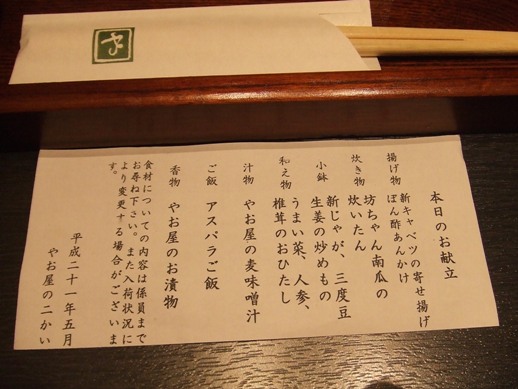 本日のお献立
揚げ物 新キャベツの寄せ揚げ
ぽん酢あんかけ
炊き物 坊ちゃん南瓜の
炊いたん
小鉢 新じゃが、三度豆
生姜の炒めもの
和え物 うまい菜、人参、
椎茸のおひたし
汁物 やお屋の麦味噌汁
ご飯 アスパラご飯
香物 やお屋のお漬物
食材についての内容は係員まで
お尋ね下さい。また入荷状況に
より変更する場合がございま
す。
平成二十一年五月
やお屋の二かい